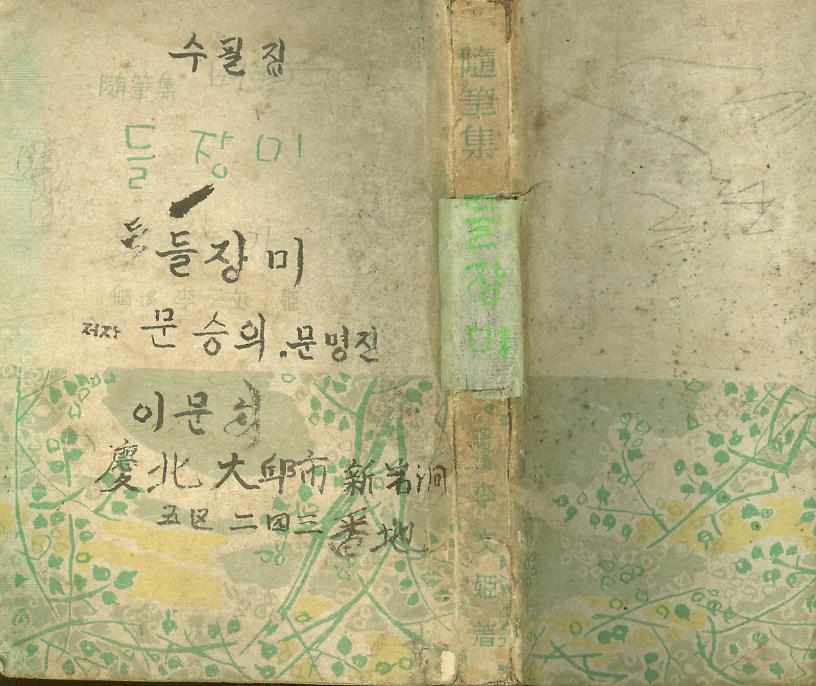 수필집
隨筆集
들장미
들장미
저자 문승의.문명진
이문
慶北 大邱市 新岩洞
五区 二四三番地
隨筆集
들장미
李文姬 著